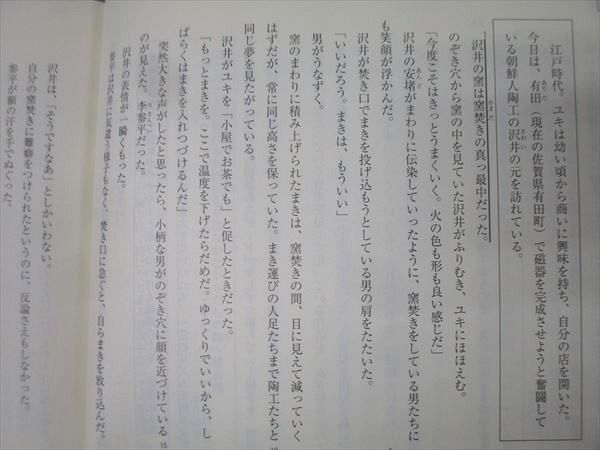 江戸時代。ユキは幼い頃から商いに興味を持ち、自分の店を開いた。
今日は、有田（現在の佐賀県有田町）で磁器を完成させようと奮闘して
いる朝鮮人陶工の沢井の元を訪れている。
沢井の窯は窯焚きの真っ最中だった。
のぞき穴から窯の中を見ていた沢井がふりむき、ユキにほほえむ。
「今度こそはきっとうまくいく。火の色も形も良い感じだ」
沢井の安堵がまわりに伝染していったように、窯焚きをしている男たちに
も笑顔が浮かんだ。
沢井が焚き口でまきを投げ込もうとしている男の肩をたたいた。
「いいだろう。まきは、もういい」
男がうなずく。
窯のまわりに積み上げられたまきは、窯焚きの間、目に見えて減っていく
はずだが、常に同じ高さを保っていた。まき運びの人足たちまで陶工たちと
同じ夢を見たがっている。
沢井がユキを「小屋でお茶でも」と促したときだった。
「もっとまきを。ここで温度を下げたらだめだ。ゆっくりでいいから、し
ばらくはまきを入れつづけるんだ」
突然大きな声がしたと思ったら、小柄な男がのぞき穴に顔を近づけている
のが見えた。李参平だった。
沢井の表情が一瞬くもった。
参平は沢井に気遣う様子もなく、焚き口に急ぐと、自らまきを放り込んだ。
沢井は、「そうですなあ」としかいわない。
自分の窯焚きに難癖をつけられたというのに、反論さえもしなかった。
参平が額の汗を手でぬぐった。